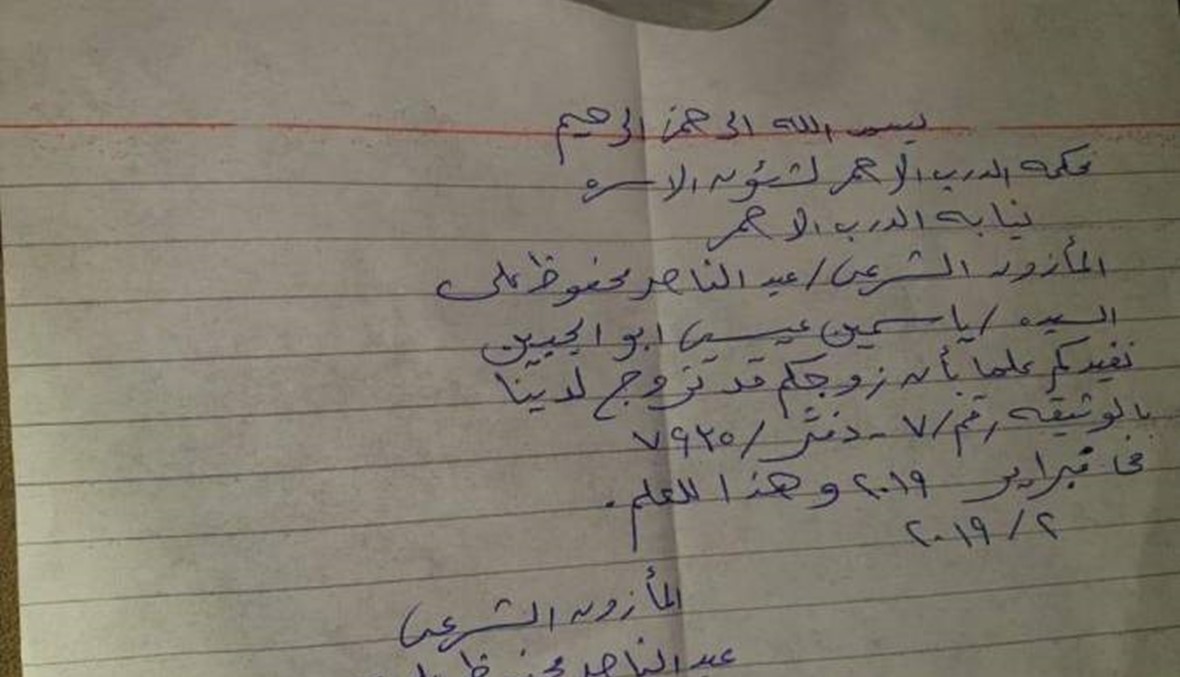 بسم الله الرحمن الرحيم
محكمة الدرب الاحمر لشئون الاسره
نيابه الدرب الاحمر
المأذون الشرعى / عبد الناصر محفوظ على
السيده / ياسمين عيسى ابو الجبين
نفيدكم علما بأن زوجكم قد تزوج لدينا
بالوثيقه رقم / ٧ - دفتر / ٧٩٢٥
فى فبراير ٢٠١٩ وهذا للعلم .
٢ / ٢٠١٩
المأذون الشرعى
عبد الناصر محفوظ على